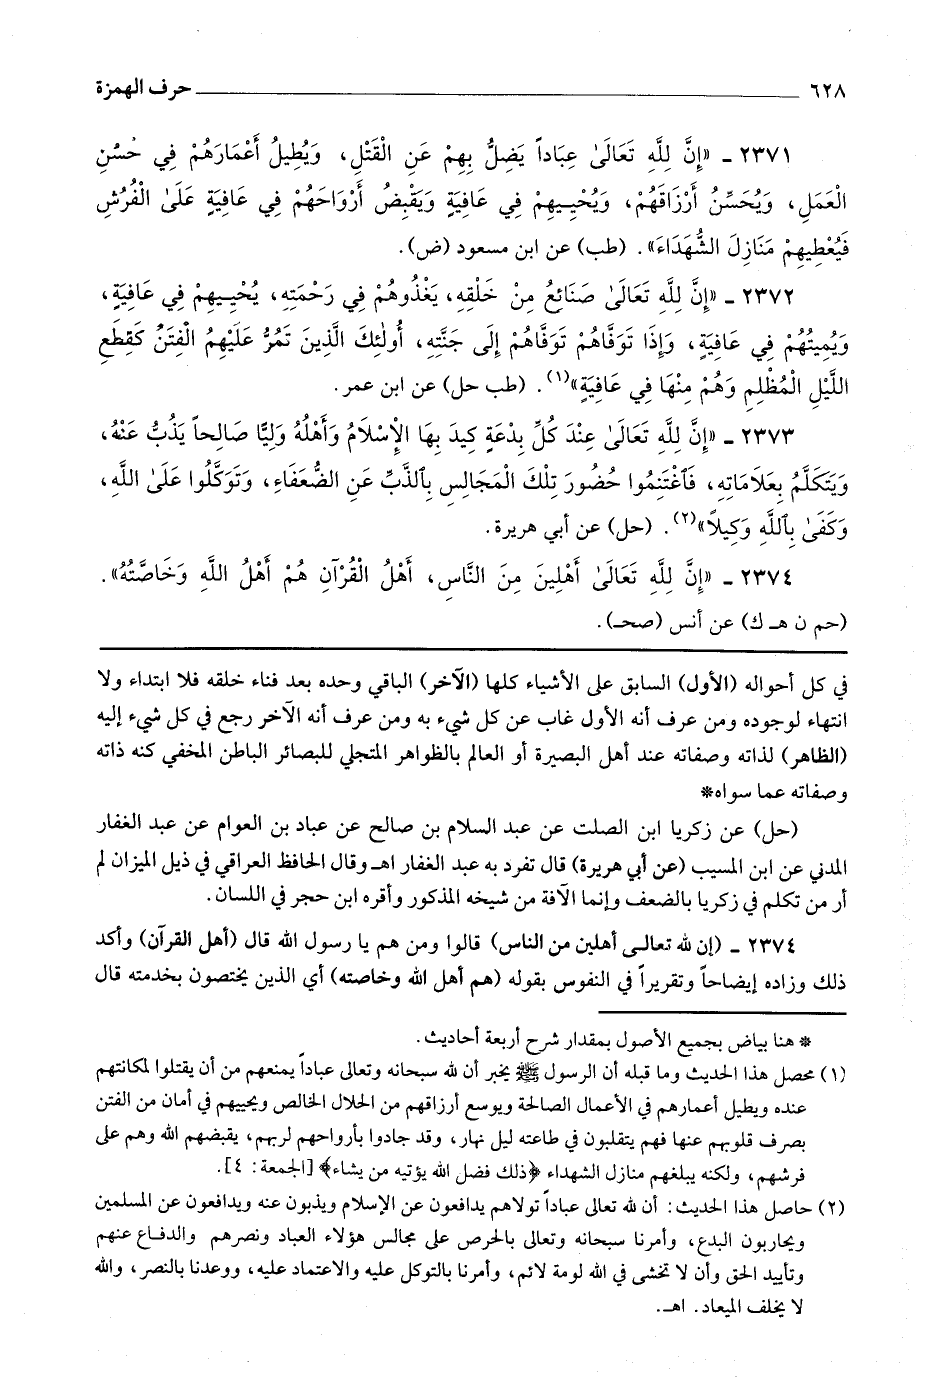 ٦٢٨ حرف الهمزة
٢٣٧١ ـ «إِنَّ لِلَّهِ تَعَالَىٰ عِبَاداً يَضِلُّ بِهِمْ عَنِ الْقَتْلِ، وَيُطِيلُ أَعْمَارَهُمْ فِي حُسْنِ
الْعَمَلِ، وَيُحَسِّنُ أَرْزَاقَهُمْ، وَيُحْيِيهِمْ فِي عَافِيَةٍ وَيَقْبِضُ أَرْوَاحَهُمْ فِي عَافِيَةٍ عَلَىٰ الْفُرُشِ
فَيُعْطِيهِمْ مَنَازِلَ الشُّهَدَاءَ». (طب) عن ابن مسعود (ض).
٢٣٧٢ ـ «إِنَّ لِلَّهِ تَعَالَىٰ صَنَائِعُ مِنْ خَلْقِهِ، يَغْذُوهُمْ فِي رَحْمَتِهِ، يُحْيِيهِمْ فِي عَافِيَةٍ،
وَيُمِيتُهُمْ فِي عَافِيَةٍ، وَإِذَا تَوَفَّاهُمْ تَوَفَّاهُمْ إِلَى جَنَّتِهِ، أُولٰئِكَ الَّذِينَ تَمُرُّ عَلَيْهِمُ الْفِتَنُ كَقِطَعِ
اللَّيْلِ الْمُظْلِمِ وَهُمْ مِنْهَا فِي عَافِيَةٍ»(١). (طب حل) عن ابن عمر.
٢٣٧٣ ـ «إِنَّ لِلَّهِ تَعَالَىٰ عِنْدَ كُلِّ بِدْعَةٍ كِيدَ بِهَا الإِسْلَامُ وَأَهْلُهُ وَلِيًّا صَالِحاً يَذُبُّ عَنْهُ،
وَيَتَكَلَّمُ بِعَلَامَاتِهِ، فَٱغْتَنِمُوا حُضُورَ تِلْكَ الْمَجَالِسِ بِٱلذَّبِّ عَنِ الضُّعَفَاءِ، وَتَوَكَّلُوا عَلَىٰ اللَّهِ،
وَكَفَىٰ بِٱللَّهِ وَكِيلاً»(٢). (حل) عن أبي هريرة.
٢٣٧٤ ـ «إِنَّ لِلَّهِ تَعَالَىٰ أَهْلِينَ مِنَ النَّاسِ، أَهْلُ الْقُرْآنِ هُمْ أَهْلُ اللَّهِ وَخَاصَّتُهُ».
(حم ن هـ ك) عن أنس (صحـ).
في كل أحواله (الأول) السابق على الأشياء كلها (الآخر) الباقي وحده بعد فناء خلقه فلا ابتداء ولا
انتهاء لوجوده ومن عرف أنه الأول غاب عن كل شيء به ومن عرف أنه الآخر رجع في كل شيء إليه
(الظاهر) لذاته وصفاته عند أهل البصيرة أو العالم بالظواهر المتجلي للبصائر الباطن المخفي كنه ذاته
وصفاته عما سواه*
(حل) عن زكريا ابن الصلت عن عبد السلام بن صالح عن عباد بن العوام عن عبد الغفار
المدني عن ابن المسيب (عن أبي هريرة) قال تفرد به عبد الغفار اهـ وقال الحافظ العراقي في ذيل الميزان لم
أر من تكلم في زكريا بالضعف وإنما الآفة من شيخه المذكور وأقره ابن حجر في اللسان.
٢٣٧٤ ـ (إن لله تعالى أهلين من الناس) قالوا ومن هم يا رسول الله قال (أهل القرآن) وأكد
ذلك وزاده إيضاحاً وتقريراً في النفوس بقوله (هم أهل الله وخاصته) أي الذين يختصون بخدمته قال
* هنا بياض بجميع الأصول بمقدار شرح أربعة أحاديث.
(١) محصل هذا الحديث وما قبله أن الرسول ﷺ يخبر أن لله سبحانه وتعالى عباداً يمنعهم من أن يقتلوا لمكانتهم
عنده ويطيل أعمارهم في الأعمال الصالحة ويوسع أرزاقهم من الحلال الخالص ويحييهم في أمان من الفتن
بصرف قلوبهم عنها فهم يتقلبون في طاعته ليل نهار، وقد جادوا بأرواحهم لربهم، يقبضهم الله وهم على
فرشهم، ولكنه يبلغهم منازل الشهداء ﴿ذلك فضل الله يؤتيه من يشاء﴾ [الجمعة: ٤].
(٢) حاصل هذا الحديث: أن لله تعالى عباداً تولاهم يدافعون عن الإسلام ويذبون عنه ويدافعون عن المسلمين
ويحاربون البدع، وأمرنا سبحانه وتعالى بالحرص على مجالس هؤلاء العباد ونصرهم والدفاع عنهم
وتأييد الحق وأن لا تخشى في الله لومة لائم، وأمرنا بالتوكل عليه والاعتماد عليه، ووعدنا بالنصر، والله
لا يخلف الميعاد. اهـ.